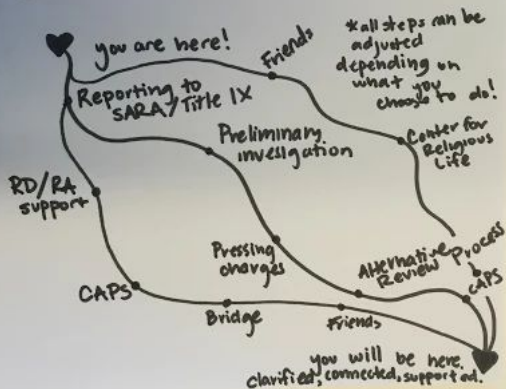 you are here!
Friends
*all steps can be
adjusted
depending on
what you
choose to do!
Reporting to
SARA/Title IX
Preliminary
invesigation
Center for
Religious
Life
RD/RA
support
Pressing
charges
Alternative
Review Process
CAPS
CAPS
Bridge
Friends
you will be here.
clarified, connected, supported.